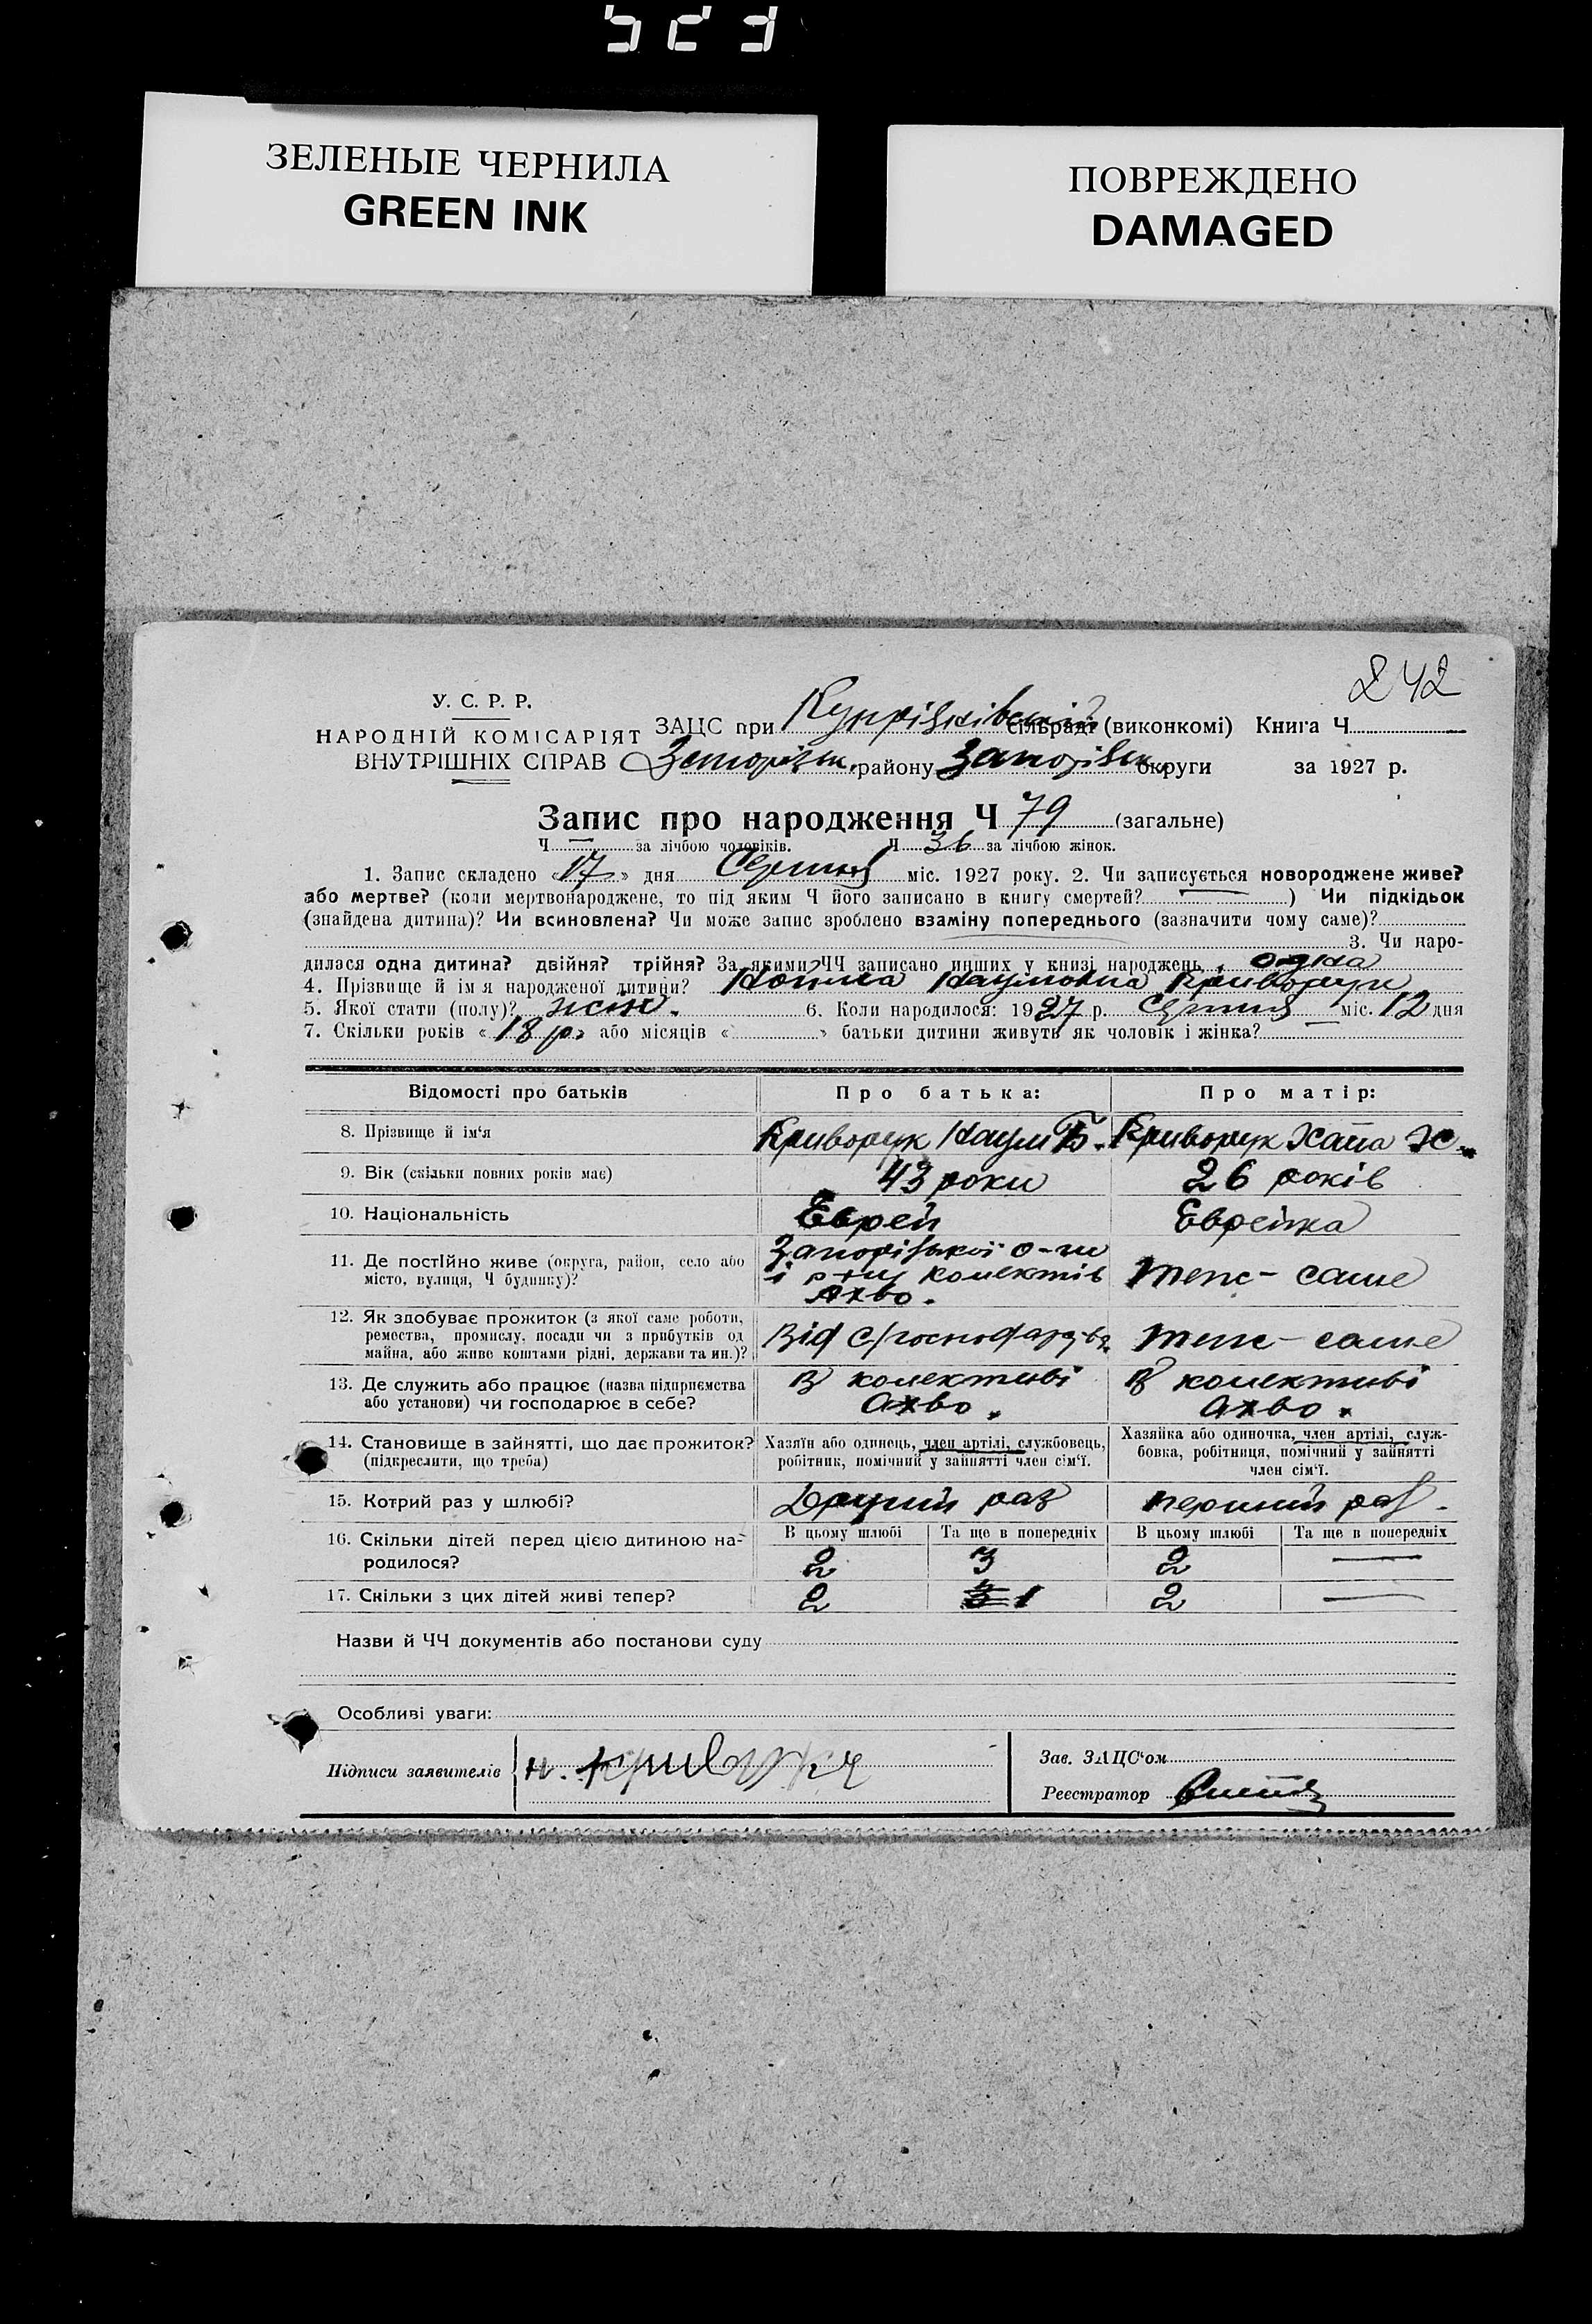 ЗЕЛЕНЫЕ ЧЕРНИЛА
GREEN INK
ПОВРЕЖДЕНО
DAMAGED
242
У. С. Р. Р.
НАРОДНІЙ КОМІСАРІЯТ
ВНУТРІШНІХ СПРАВ
ЗАЦС при сільраді (виконкомі) Книга Ч.
Запорізьк. району Запорізьк. округи за 1927 р.
Запис про народження Ч 79 (загальне)
Ч — за лічбою чоловіків. Ч 36 за лічбою жінок.
1. Запис складено «17» дня Серпня міс. 1927 року. 2. Чи записується новороджене живе?
або мертве? (коли мертвонароджене, то під яким Ч його записано в книгу смертей? — ) Чи підкідьок
(знайдена дитина)? Чи всиновлена? Чи може запис зроблено взаміну попереднього (зазначити чому саме)?
3. Чи наро-
дилася одна дитина? двійня? трійня? За якими ЧЧ записано инших у книзі народжень одна
4. Прізвище й ім я народженої дитини? Наумовна Криворук
5. Якої стати (полу)? жін. 6. Коли народилося: 1927 р. Серпня міс. 12 дня
7. Скільки років «18 р.» або місяців « » батьки дитини живуть як чоловік і жінка? —
Відомості про батьків
Про батька:
Про матір:
8. Прізвище й ім‘я
Криворук Наум Б.
Криворук Хана Х.
9. Вік (скільки повних років має)
43 роки
26 років
10. Національність
Еврей
Еврейка
11. Де постійно живе (округа, район, село або
місто, вулиця, Ч будинку)?
Запорізької о-ги
і р-ну колектів
Ахво.
теж-саме
12. Як здобуває прожиток (з якої саме роботи,
ремества, промислу, посади чи з прибутків од
майна, або живе коштами рідні, держави та ин.)?
Від с/господарства
теж-саме
13. Де служить або працює (назва підприємства
або установи) чи господарює в себе?
В колективі
Ахво.
В колективі
Ахво.
14. Становище в зайнятті, що дає прожиток?
(підкреслити, що треба)
Хазяїн або одинець, член артілі, службовець,
робітник, помічний у зайнятті член сім‘ї.
Хазяйка або одиночка, член артілі, служ-
бовка, робітниця, помічний у зайнятті
член сім‘ї.
15. Котрий раз у шлюбі?
Другий раз
перший раз.
16. Скільки дітей перед цією дитиною на-
родилося?
В цьому шлюбі
Та ще в попередніх
В цьому шлюбі
Та ще в попередніх
2
3
2
—
17. Скільки з цих дітей живі тепер?
2
3 1
2
—
Назви й ЧЧ документів або постанови суду
Особливі уваги:
Підписи заявителів
Зав. ЗАЦС‘ом
Реєстратор